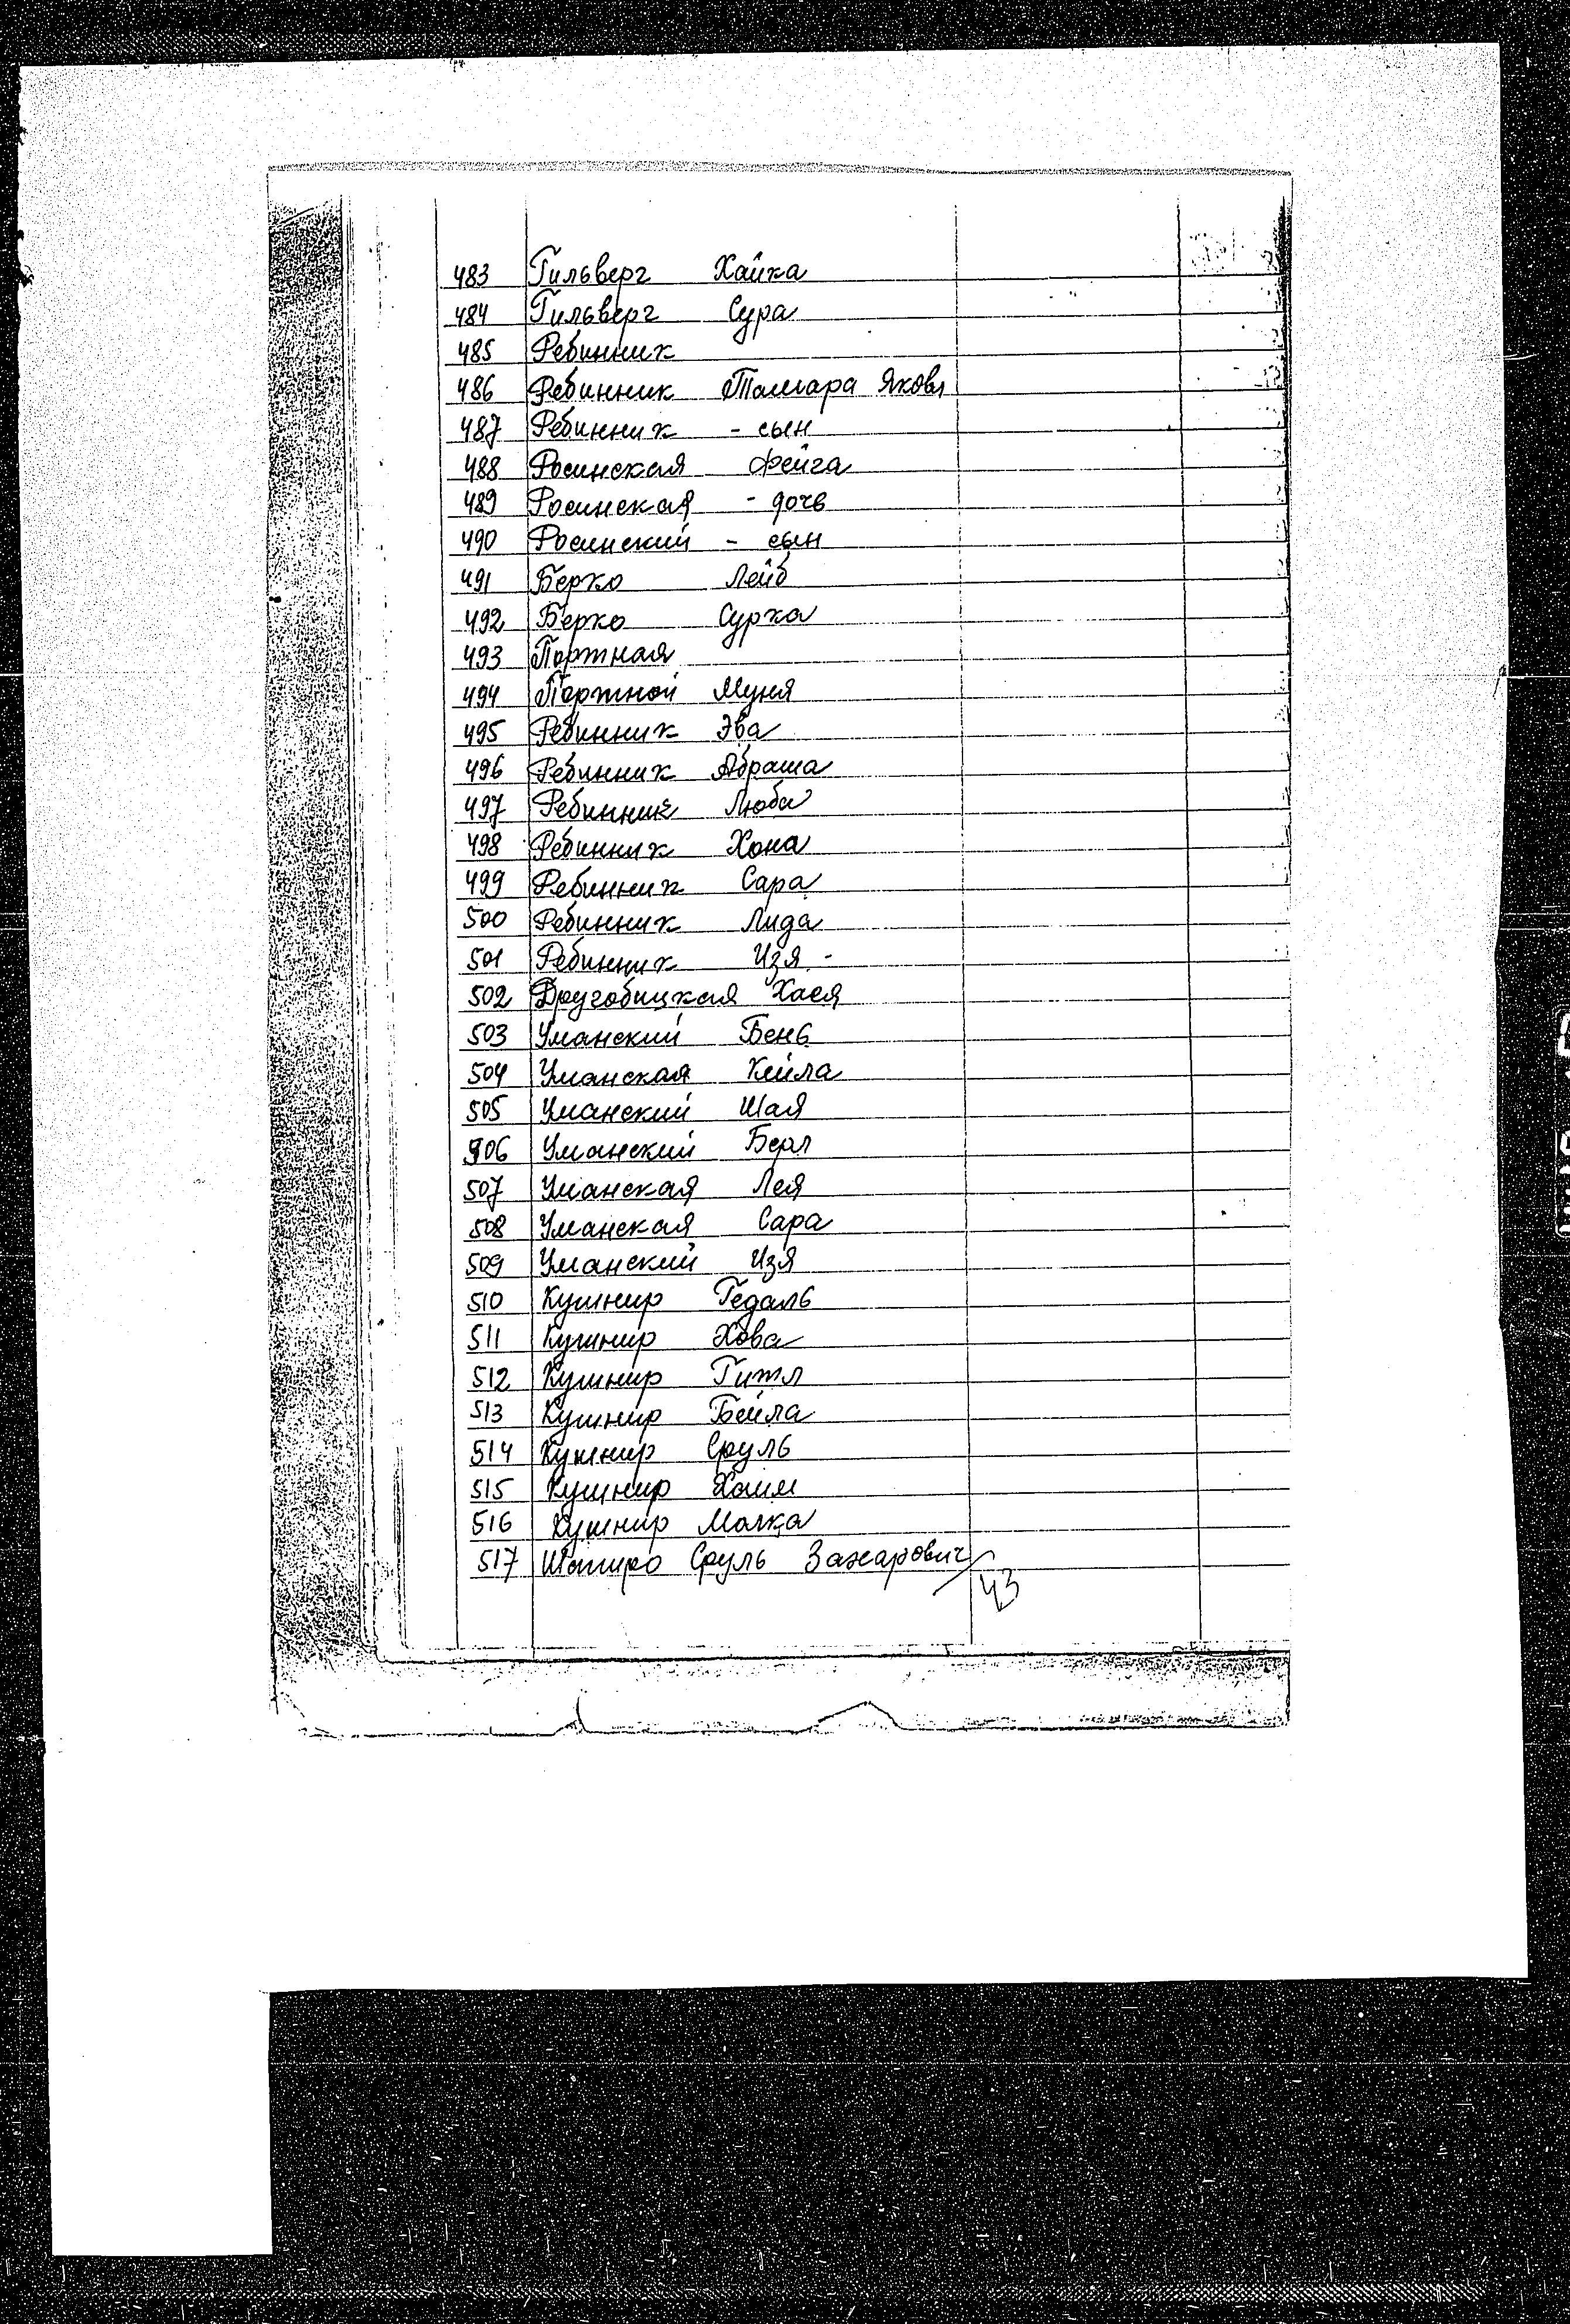 483 Гильверг Хайка
484 Гильверг Сура
485 Ребинник
486 Ребинник Тамара Яковл
487 Ребинник - сын
488 Росинская Фейга
489 Росинская - дочь
490 Росинский - сын
491 Берко Лейб
492 Берко Сурка
493 Портная
494 Портной Муня
495 Ребинник Эва
496 Ребинник Абраша
497 Ребинник Люба
498 Ребинник Хона
499 Ребинник Сара
500 Ребинник Лида
501 Ребинник Изя -
502 Другобицкая Хася
503 Уманский Бень
504 Уманская Кейла
505 Уманский Шая
506 Уманский Берл
507 Уманская Лея
508 Уманская Сара
509 Уманский Изя
510 Кушнир Гедаль
511 Кушнир Хова
512 Кушнир Гитл
513 Кушнир Бейла
514 Кушнир Сруль
515 Кушнир Хаим
516 Кушнир Малка
517 Шапиро Сруль Захарович
43